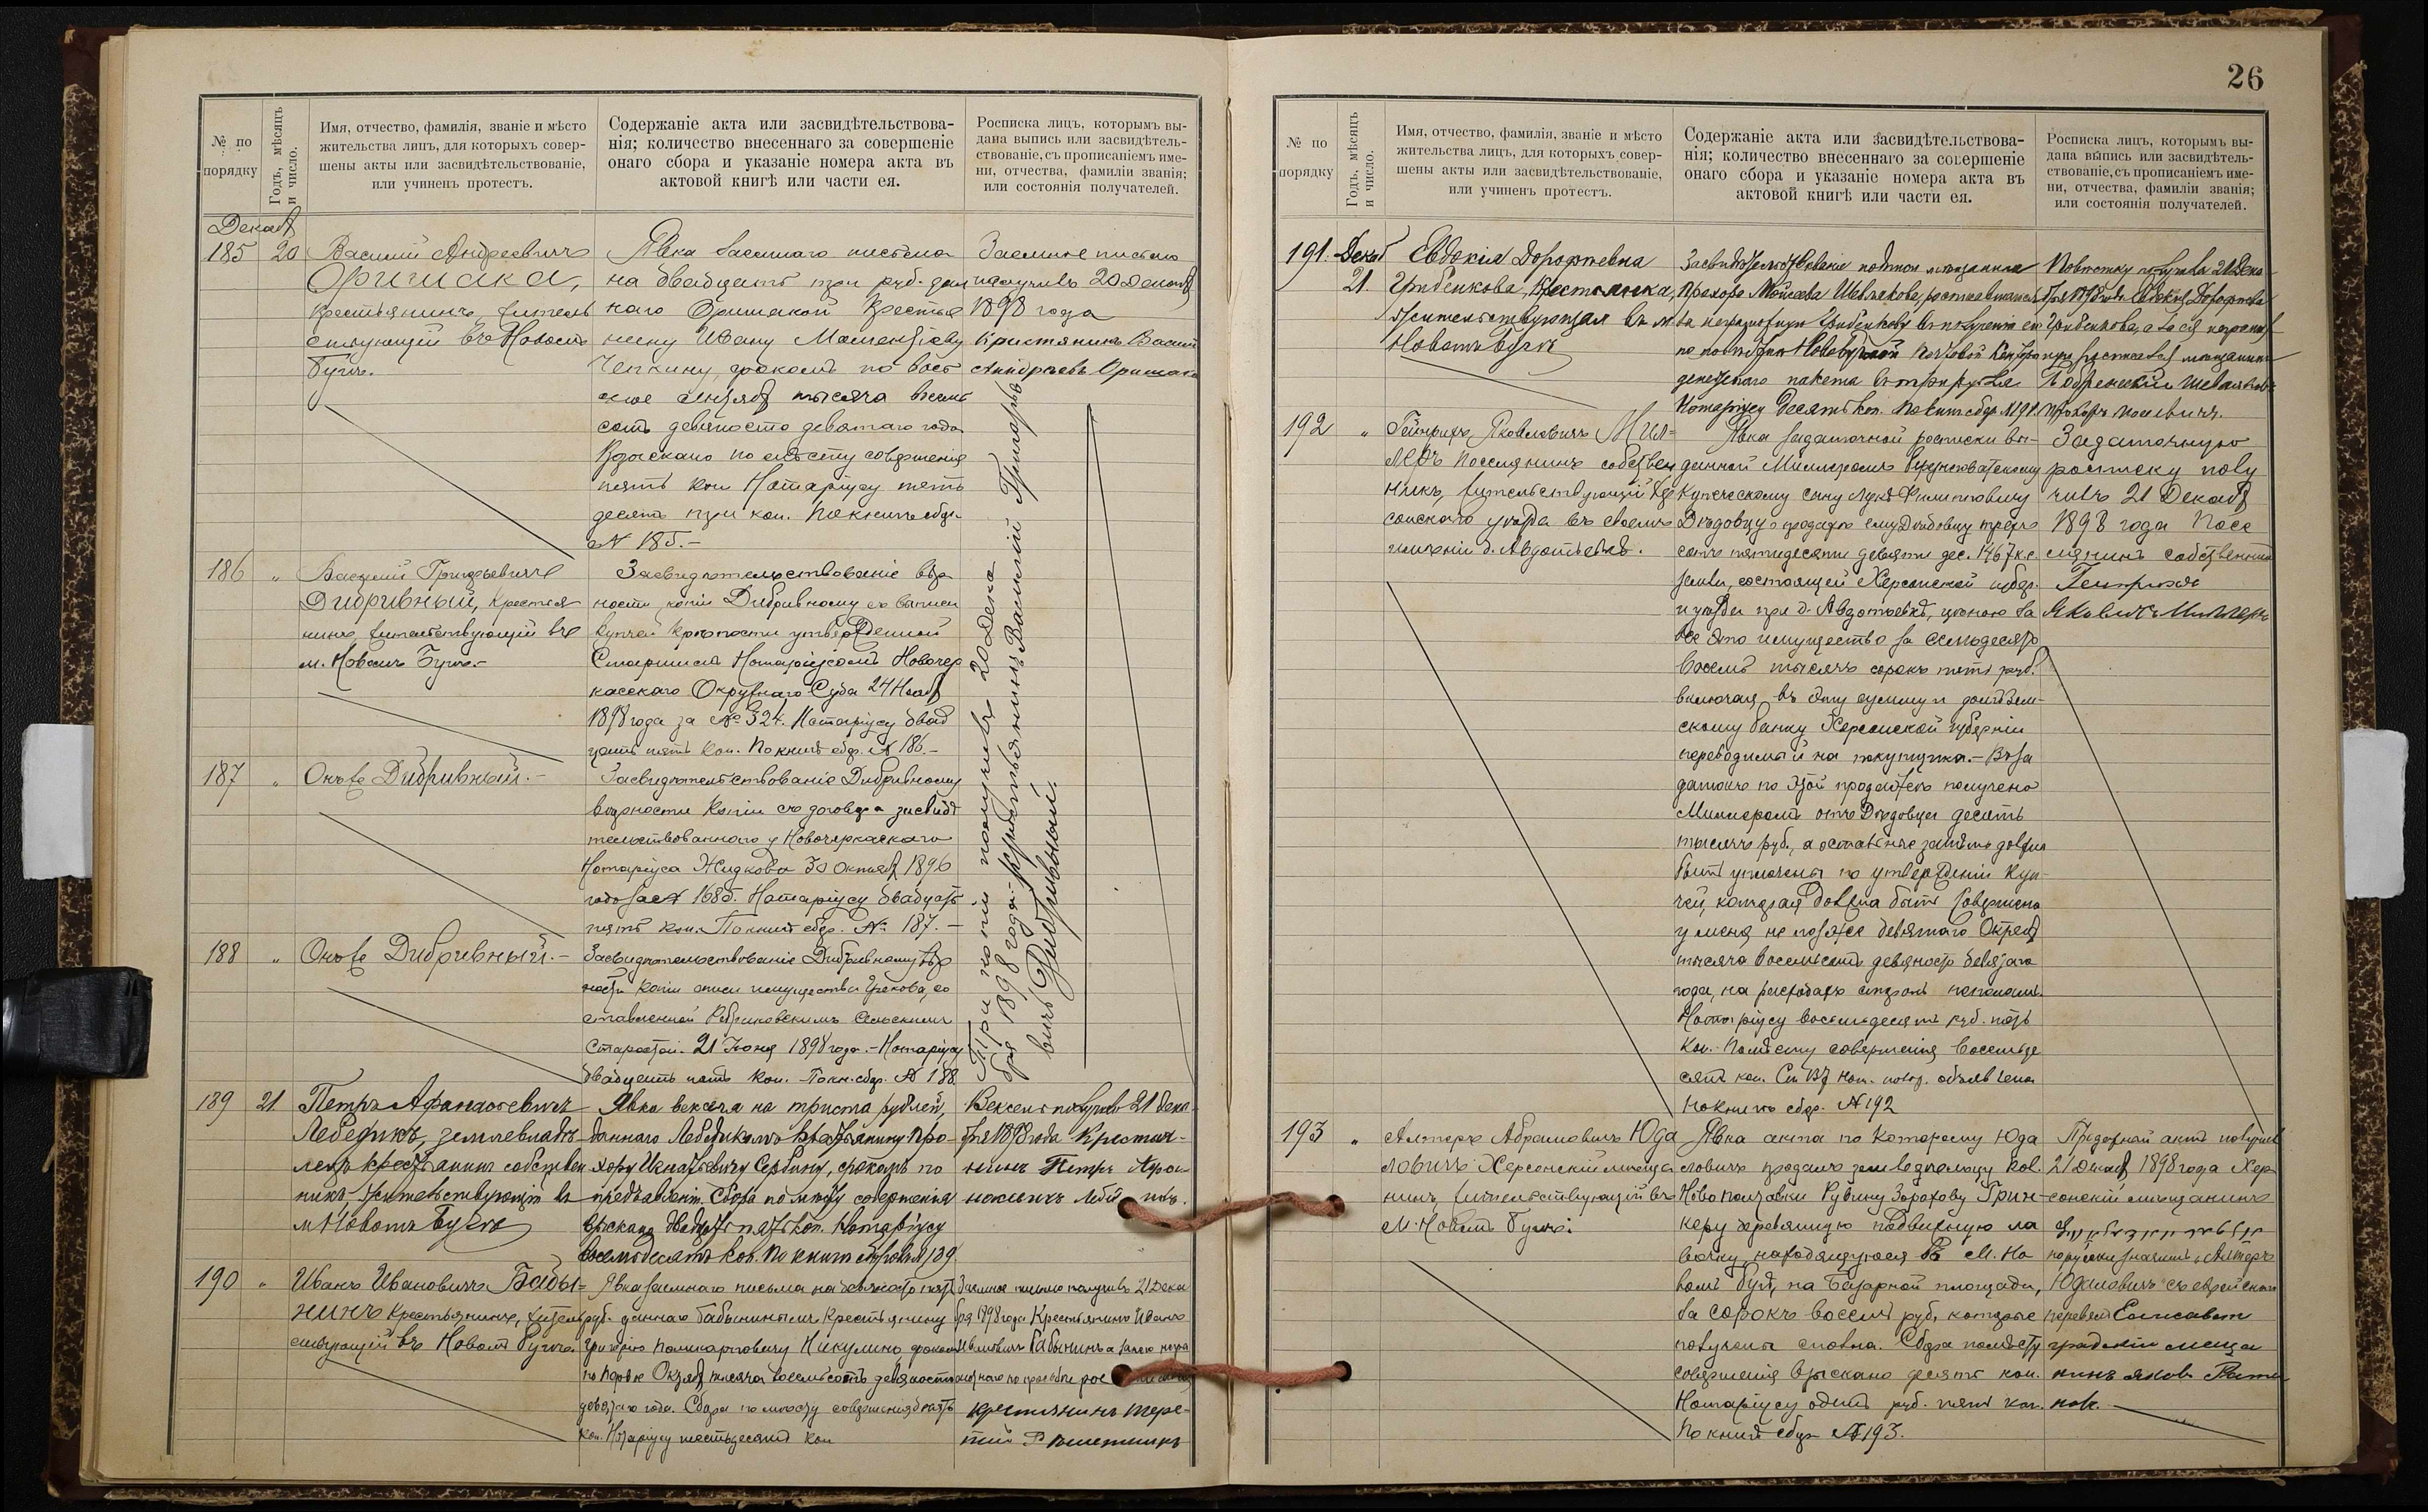 № по порядку
Годъ, мѣсяцъ и число.
Имя, отчество, фамилія, званіе и мѣсто
жительства лицъ, для которыхъ совер-
шены акты или засвидѣтельствованіе,
или учиненъ протестъ.
Содержаніе акта или засвидѣтельствова-
нія; количество внесеннаго за совершеніе
онаго сбора и указаніе номера акта въ
актовой книгѣ или части ея.
Росписка лицъ, которымъ вы-
дана выпись или засвидѣтель-
ствованіе, съ прописаніемъ име-
ни, отчества, фамиліи званія;
или состоянія получателей.
Декаб
185 20
Василій Андреевичъ
Оришака,
крестьянинъ, житель
ствующій въ Новомъ
Бугѣ.
Явка заемнаго письма
на двадцать три руб. дан
наго Оришакой крестья
нину Ивану
Чепкину, срокомъ по вось
мое Января тысяча восемь
сотъ девяносто девятаго года
Взыскано по мѣсту совершенія
пять коп. Нотаріусу пять
десятъ три коп. По книгѣ сбор.
№ 185.-
Заемное письмо
получилъ 20 Декаб
1898 года
Кристянинъ Васил
Андріевъ Оришака
186 "
Василій Григорьевичъ
Дибривный, крестья
нинъ, жительствующій въ
м. Новомъ Бугѣ.-
Засвидѣтельствованіе вѣр
ности копіи Дибривному съ выписи
купчей крѣпости утвержденной
Старшимъ Нотаріусомъ Новочер
касскаго Окружнаго Суда 24 Нояб
1898 года за № 324. Нотаріусу двад
цать пять коп. По книгѣ сбор. № 186.-
187 "
Онъ же Дибривный.-
Засвидѣтельствованіе Дибривному
вѣрности копіи съ договора засвидѣ
тельствованнаго у Новочеркасскаго
Нотаріуса Жидкова 30 Октяб 1896
года за № 1685. Нотаріусу двадцать
пять коп. По книгѣ сбор. № 187.-
188 "
Онъ же Дибривный.-
Засвидѣтельствованіе Дибривному вѣр
ности копіи описи имущества Грекова, со
ставленной Ребриковскимъ Сельскимъ
Старостой. 21 Іюня 1898 года.- Нотаріусу
двадцать пять коп. По кн. сбор. № 188
Три копіи получилъ 20 Дека
бря 1898 года.- Крестьянинъ Василій Григорье
вичъ Дибривный.
189 21
Петръ Афанасьевичъ
Лебедикъ, землевладѣ-
лецъ крестьянинъ собствен
никъ, жительствующій въ
м. Новомъ Бугѣ
Явка векселя на триста рублей,
даннаго Лебедикомъ крестьянину Про-
хору Игнатьевичу Сербину, срокомъ по
предъявленіи. Сбора по мѣсту совершенія
взыскано двадцать пять коп. Нотаріусу
восемьдесятъ коп. По книгѣ сборовъ № 189
Вексель получилъ 21 Дека-
бря 1898 года Крестьян-
нинъ Петръ
190 "
Иванъ Ивановичъ Бабы-
нинъ крестьянинъ, житель
ствующій въ Новомъ Бугѣ.
Явка заемнаго письма на девяносто пять
руб. даннаго Бабынинымъ крестьянину
Григорію Поликарповичу Никулину срокомъ
по первое Октяб тысяча восемьсотъ девяносто
девятаго года. Сбора по мѣсту совершенія десять
коп. Нотаріусу шестьдесятъ коп
Заемное письмо получилъ 21 Дека
бря 1898 года Крестьянинъ Иванъ
Ивановичъ Бабынинъ а за его негра
мотнаго по просьбѣ рос
крестьянинъ Тере-
нтій
26
№ по порядку
Годъ, мѣсяцъ и число.
Имя, отчество, фамилія, званіе и мѣсто
жительства лицъ, для которыхъ совер-
шены акты или засвидѣтельствованіе,
или учиненъ протестъ.
Содержаніе акта или засвидѣтельствова-
нія; количество внесеннаго за совершеніе
онаго сбора и указаніе номера акта въ
актовой книгѣ или части ея.
Росписка лицъ, которымъ вы-
дана выпись или засвидѣтель-
ствованіе, съ прописаніемъ име-
ни, отчества, фамиліи званія;
или состоянія получателей.
191. Декаб
21.
Евдокія Дорофтевна
Грибенкова, крестьянка,
жительствующая въ м.
Новомъ Бугѣ
Засвидѣтельствованіе подписи мѣщанина
Прохора Моисеева Шевлякова, роспис
за неграмотную Грибенкову въ полученіи ею
по повѣсткѣ Новобугской почтовой конторы
денежнаго пакета въ три рубля
Нотаріусу десять коп. По книгѣ сбор. № 191.
Повѣстку получила 21 Дека
бря 1898 года Евдокія Дорофтева
Грибенкова, а за ея неграмот
росписался мѣщанинъ
Бобринецкій Шевляковъ
Прохоръ
192 "
Гейнрихъ Яковлевичъ Мил-
леръ поселянинъ собствен
никъ, жительствующій Хер
сонскаго уѣзда въ своемъ
имѣніи д. Авдотьевкѣ.
Явка задаточной росписки вы-
данной Миллеромъ
купеческому сыну Филипповичу
Дѣдовцу о продажѣ ему Дѣдовцу трехъ
сотъ пятидесяти девяти дес. 1467 к.с.
земли, состоящей Херсонской губер.
и уѣзда при д. Авдотьевкѣ, цѣною за
все это имущество за семьдесятъ
восемь тысячъ сорокъ пять руб.
включая въ эту сумму и долгъ Зем-
скому банку Херсонской губерніи
переводимый на покупщика.- Въ за
датокъ по этой продажѣ получено
Миллеромъ отъ Дѣдовца десять
тысячъ руб., а остальные затѣмъ должны
быть уплочены по утвержденіи куп-
чей, которая должна быть совершена
у меня не позже девятаго
тысяча восемьсотъ девяносто девятаго
года, на расходахъ сторонъ пополамъ.
Нотаріусу восемьдесятъ руб. пять
коп.- По мѣсту совершенія восемьде
сятъ коп. объявлена
По книгѣ сбор. № 192
Задаточную
росписку полу
чилъ 21 Декаб
1898 года Посе
лянинъ собственни
Генрихъ
Яковличъ Миллеръ
193 "
Алтеръ Абрамовичъ Юда
ловичъ Херсонскій мѣща
нинъ, жительствующій въ
М. Новомъ Бугѣ.
Явка акта по которому Юда
ловичъ продалъ земледѣльцу кол.
Новополтавки Рувину Зорохову Грин-
керу деревянную подвижную ла
вочку, находящуюся въ М. Но
вомъ Бугѣ, на Базарной площади,
за сорокъ восемь руб. которые
получены сполна. Сбора по мѣсту
совершенія взыскано десять коп.
Нотаріусу одинъ руб. пять коп.
По книгѣ сбор № 193.
актъ получилъ
21 Декаб 1898 года Хер
сонскій мѣщанинъ
по русски значитъ: Алтеръ
Юдаловичъ съ еврейскаго
перевелъ Елисавет
градскій мѣща
нинъ Яковъ